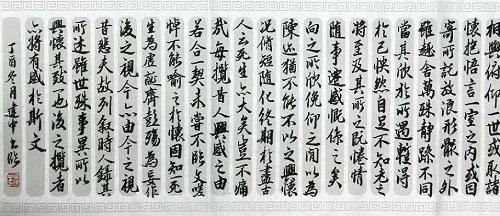 相與俯仰一世或取諸
懷抱悟言一室之内或因
寄所託放浪形骸之外
雖趣舍萬殊靜躁不同
當其欣於所遇蹔得
於己怏然自足不知老之
將至及其所之既惓情
隨事遷感慨係之矣
向之所欣俛仰之間以為
陳迹猶不能不以之興懷
況脩短隨化終期於盡古
人云死生亦大矣豈不痛
哉每攬昔人興感之由
若合一契未嘗不臨文嗟
悼不能喻之於懷固知一死
生為虛誕齊彭殤為妄作
後之視今亦由今之視
昔悲夫故列叙時人錄其
所述雖世殊事異所以
興懷其致一也後之攬者
亦將有感於斯文
丁酉冬月建中臨